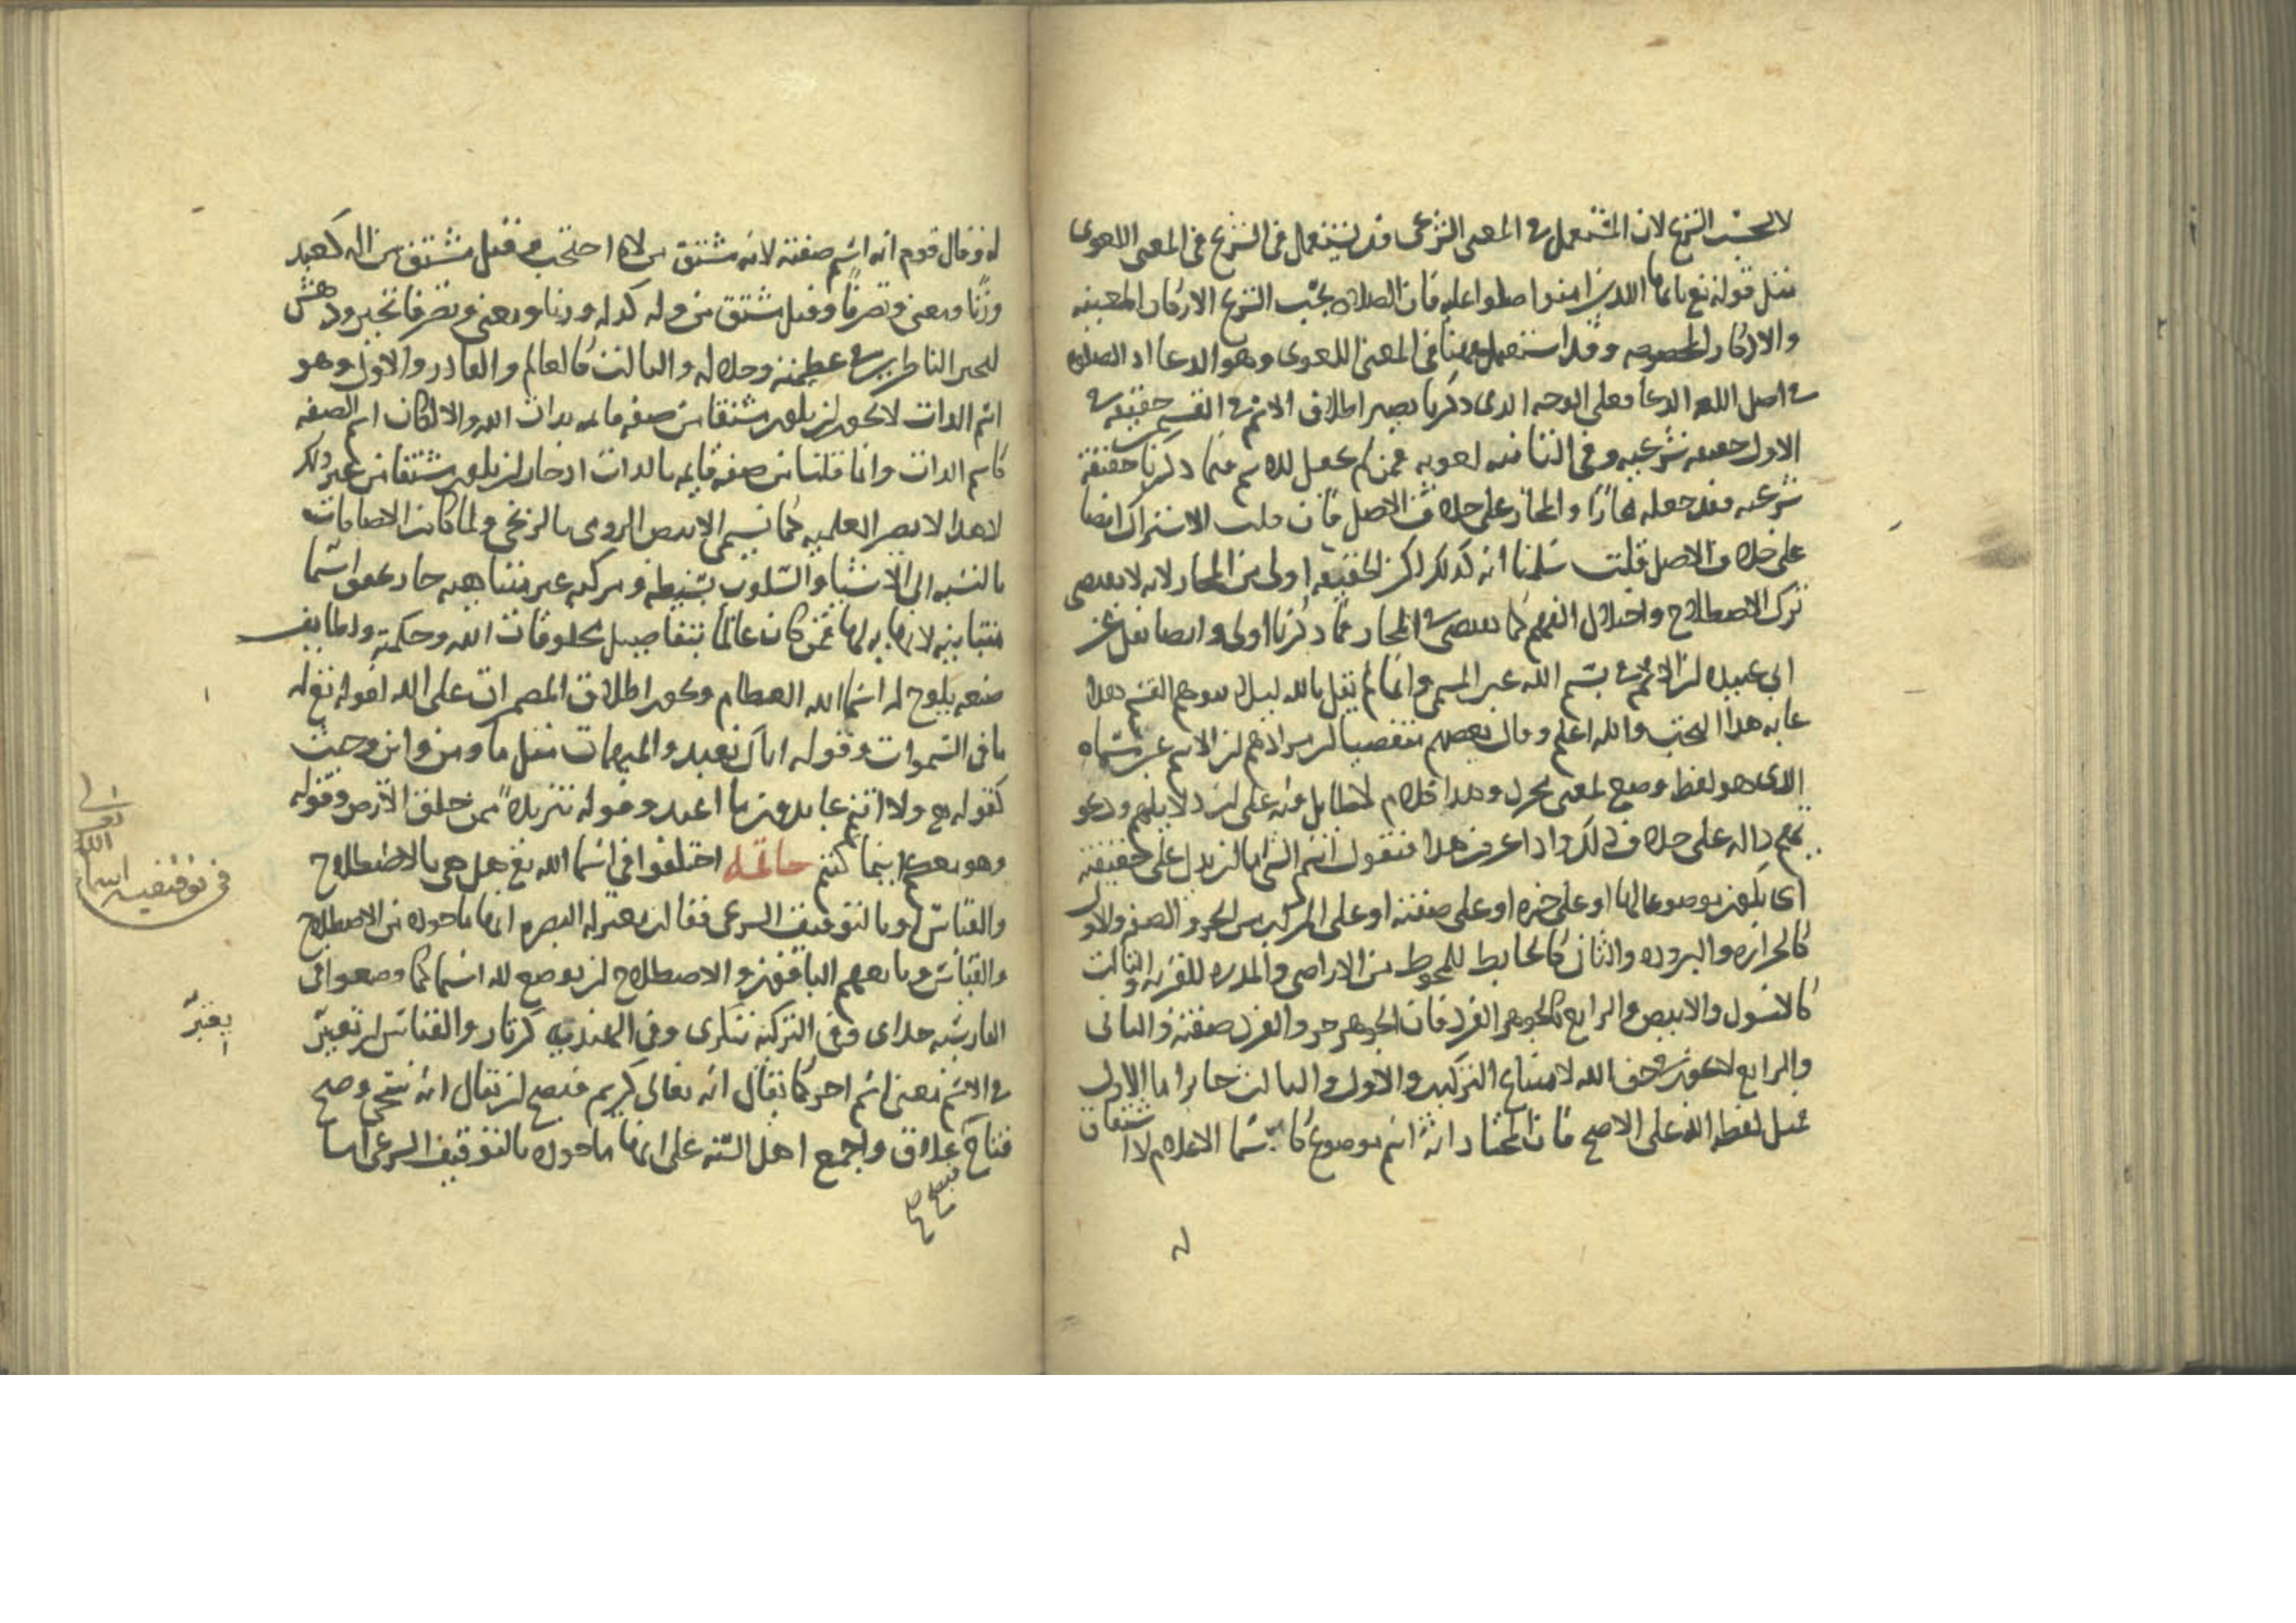 لا بحسب الشرع لان المستعمل في المعنى الشرعي قد يستعمل في الشرع في المعنى اللغوى
مثل قوله تع ياايها الذين امنوا صلوا عليه فان الصلاه بحسب الشرع الاركان المعينه
والاذكار المخصوصه وقد استعمل هنا في المعنى اللغوى وهو الدعا اذ الصلاه
في اصل اللغه الدعا فعلى الوجه الدى ذكرنا يصير اطلاق الاسم في القسم حقيقه في
الاول حقيقه شرعيه وفي الثانيه لغويه فمن لم يجعل للاسم فيما ذكرنا حقيقة
شرعيه فقد جعله مجازا والمجاز على خلاف الاصل فان قلت الاشتراك ايضا
على خلاف الاصل قلت سلمنا انه كذلك لكن الحقيقه اولى من المجاز لانه لا يقتضى
ترك الاصطلاح واختلال الفهم كما يقتضى في المجاز فما ذكرنا اولى وايضا نقل عن
ابى عبيده ان الاسم في بسم الله عين المسمى وانما لم يقل بالله ليلا يتوهم القسم هذا
غايه هذا البحث والله اعلم وقال بعضهم متعصبا ان مرادهم ان الاسم غير مسماه
الذى هو لفظ وضع لمعنى مجرد وهذا كلام لا طايل فيه على انه لا يلايم
دالة على خلاف ذلك واذا عرفت هذا فنقول اسم الشى اما ان يدل على حقيقته
اى يكون موضوعا لها او على جزه او على صفته او على المركب من الجز والصفه والاول
كالحراره والبروده والثانى كالحايط للمحوط من الاراضى والمدره للقريه والثالث
كالاسود والابيض والرابع كالجوهر الفرد فان الجوهر جز والفرد صفته والثانى
والرابع لا يجوز في حق الله لامتناع التركيب والاول والثالث جايز اما الاول
مثل لفظة الله على الاصح فان المختار انه اسم موضوع كاسما الاعلام لا اشتقاق
له
له وقال قوم انه اسم صفته لانه مشتق من لاه احتجب وقيل مشتق من اله كعبد
وزنا ومعنى وتصرفا وقيل مشتق من وله كدله وزنا ومعنى وتصرفا تحير ودهش
لتحير الناظرين في عظمته وجلاله والثالث كالعالم والقادر والاول وهو
اسم الذات لا يجوز ان يكون مشتقا من صفه قايمه بذات الله والا لكان اسم الصفه
كاسم الذات وانما قلنا من صفه قايمه بالذات اذ جاز ان يكون مشتقا من غير ذلك
لان هذا لا يضر العلميه كما يسمى الابيض الرومى بالزنجى ولما كانت الاضافات
بالنسبه الى الاشيا والسلوب بسيطه ومركبه غير متناهيه جاز تحقق اسما
متباينه لا نهايه لها فمن كان عالما بتفاصيل مخلوقات الله وحكمته ولطايف
صنعه يلوح له اسما الله العظام ويجوز اطلاق المضمرات على الله لقوله تع له
ما في السموات وقوله اياك نعبد والمبهمات مثل ما ومن واين وحيث
كقوله تع ولا انتم عابدون ما اعبد وقوله تنزيلا ممن خلق الارض وقوله
وهو معكم اينما كنتم خاتمه اختلفوا في اسما الله تع هل هى بالاصطلاح
والقياس او بالتوقيف الشرعى فقالت معتزله البصره انها ماخوده من الاصطلاح
والقياس وتابعهم الباقون والاصطلاح ان يوضع لله اسما كما وضعوا في
الفارسيه خداى وفي التركيه تنكرى وفي الهنديه كرتار والقياس ان تعبر
في الاسم بمعنى اسم اخر كما يقال انه تعالى كريم فيصح ان يقال انه سخى وصح
فتاح علاق واجمع اهل السنه على انها ماخوده بالتوقيف الشرعى اما
في توقيفيه اسما الله تعالى
يعتبر